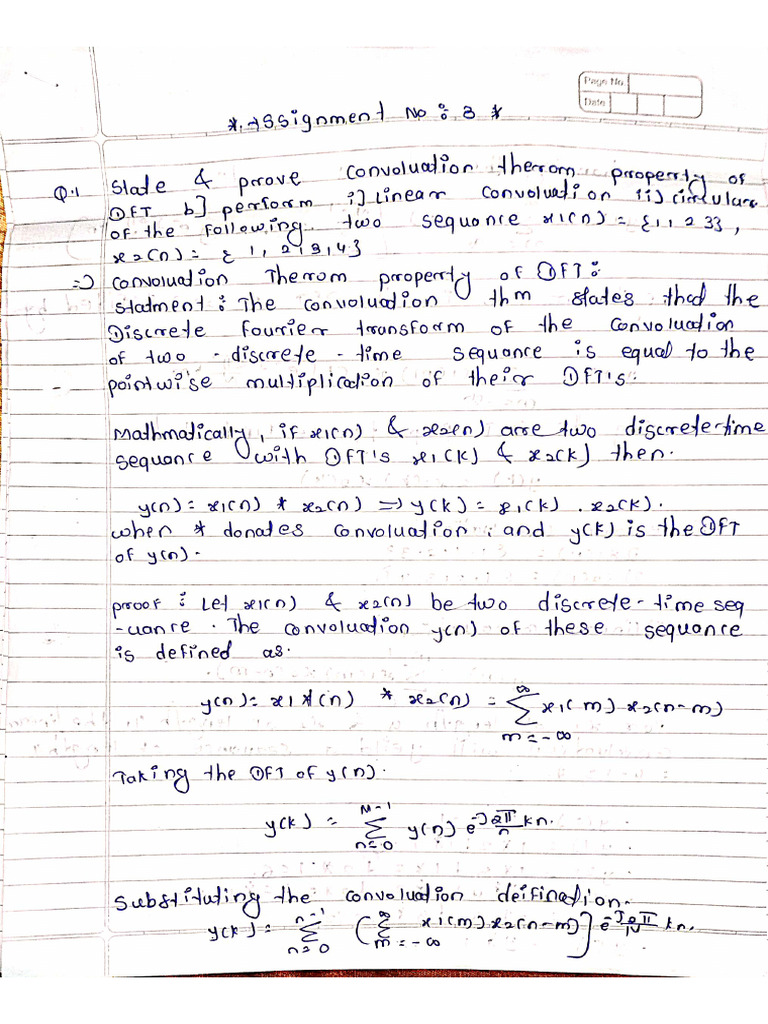 Page No
Date
* Assignment No : 3 *
Q.1 State & prove convoluation therom property of
DFT b] perform i] Linear convoluation ii] circulare
of the following two sequance x1(n) = {1, 1 2 3},
x2(n) = { 1, 2, 3, 4}
=> convoluation Therom property of DFT :
statment : The convoluation thm states that the
Discrete fourier transform of the convoluation
of two - discrete - time sequance is equal to the
pointwise multiplication of their DFT's.
Mathmatically, if x1(n) & x2(n) are two discrete-time
sequance with DFT's x1(k) & x2(k) then.
y(n) = x1(n) * x2(n) => y(k) = x1(k) . x2(k).
when * donates convoluation . and y(k) is the DFT
of y(n).
proof : Let x1(n) & x2(n) be two discrete - time seq
-uance . The convoluation y(n) of these sequance
is defined as.
y(n) = x1(n) * x2(n) = ∞ Σ m = -∞ x1(m) x2(n-m)
Taking the DFT of y(n).
y(k) = N-1 Σ n=0 y(n) e^-J 2π/n kn.
Substituting the convoluation deifination.
y(k) = n-1 Σ n=0 ( ∞ Σ m = -∞ x1(m) x2(n-m) ] e^-J 2π/N kn.